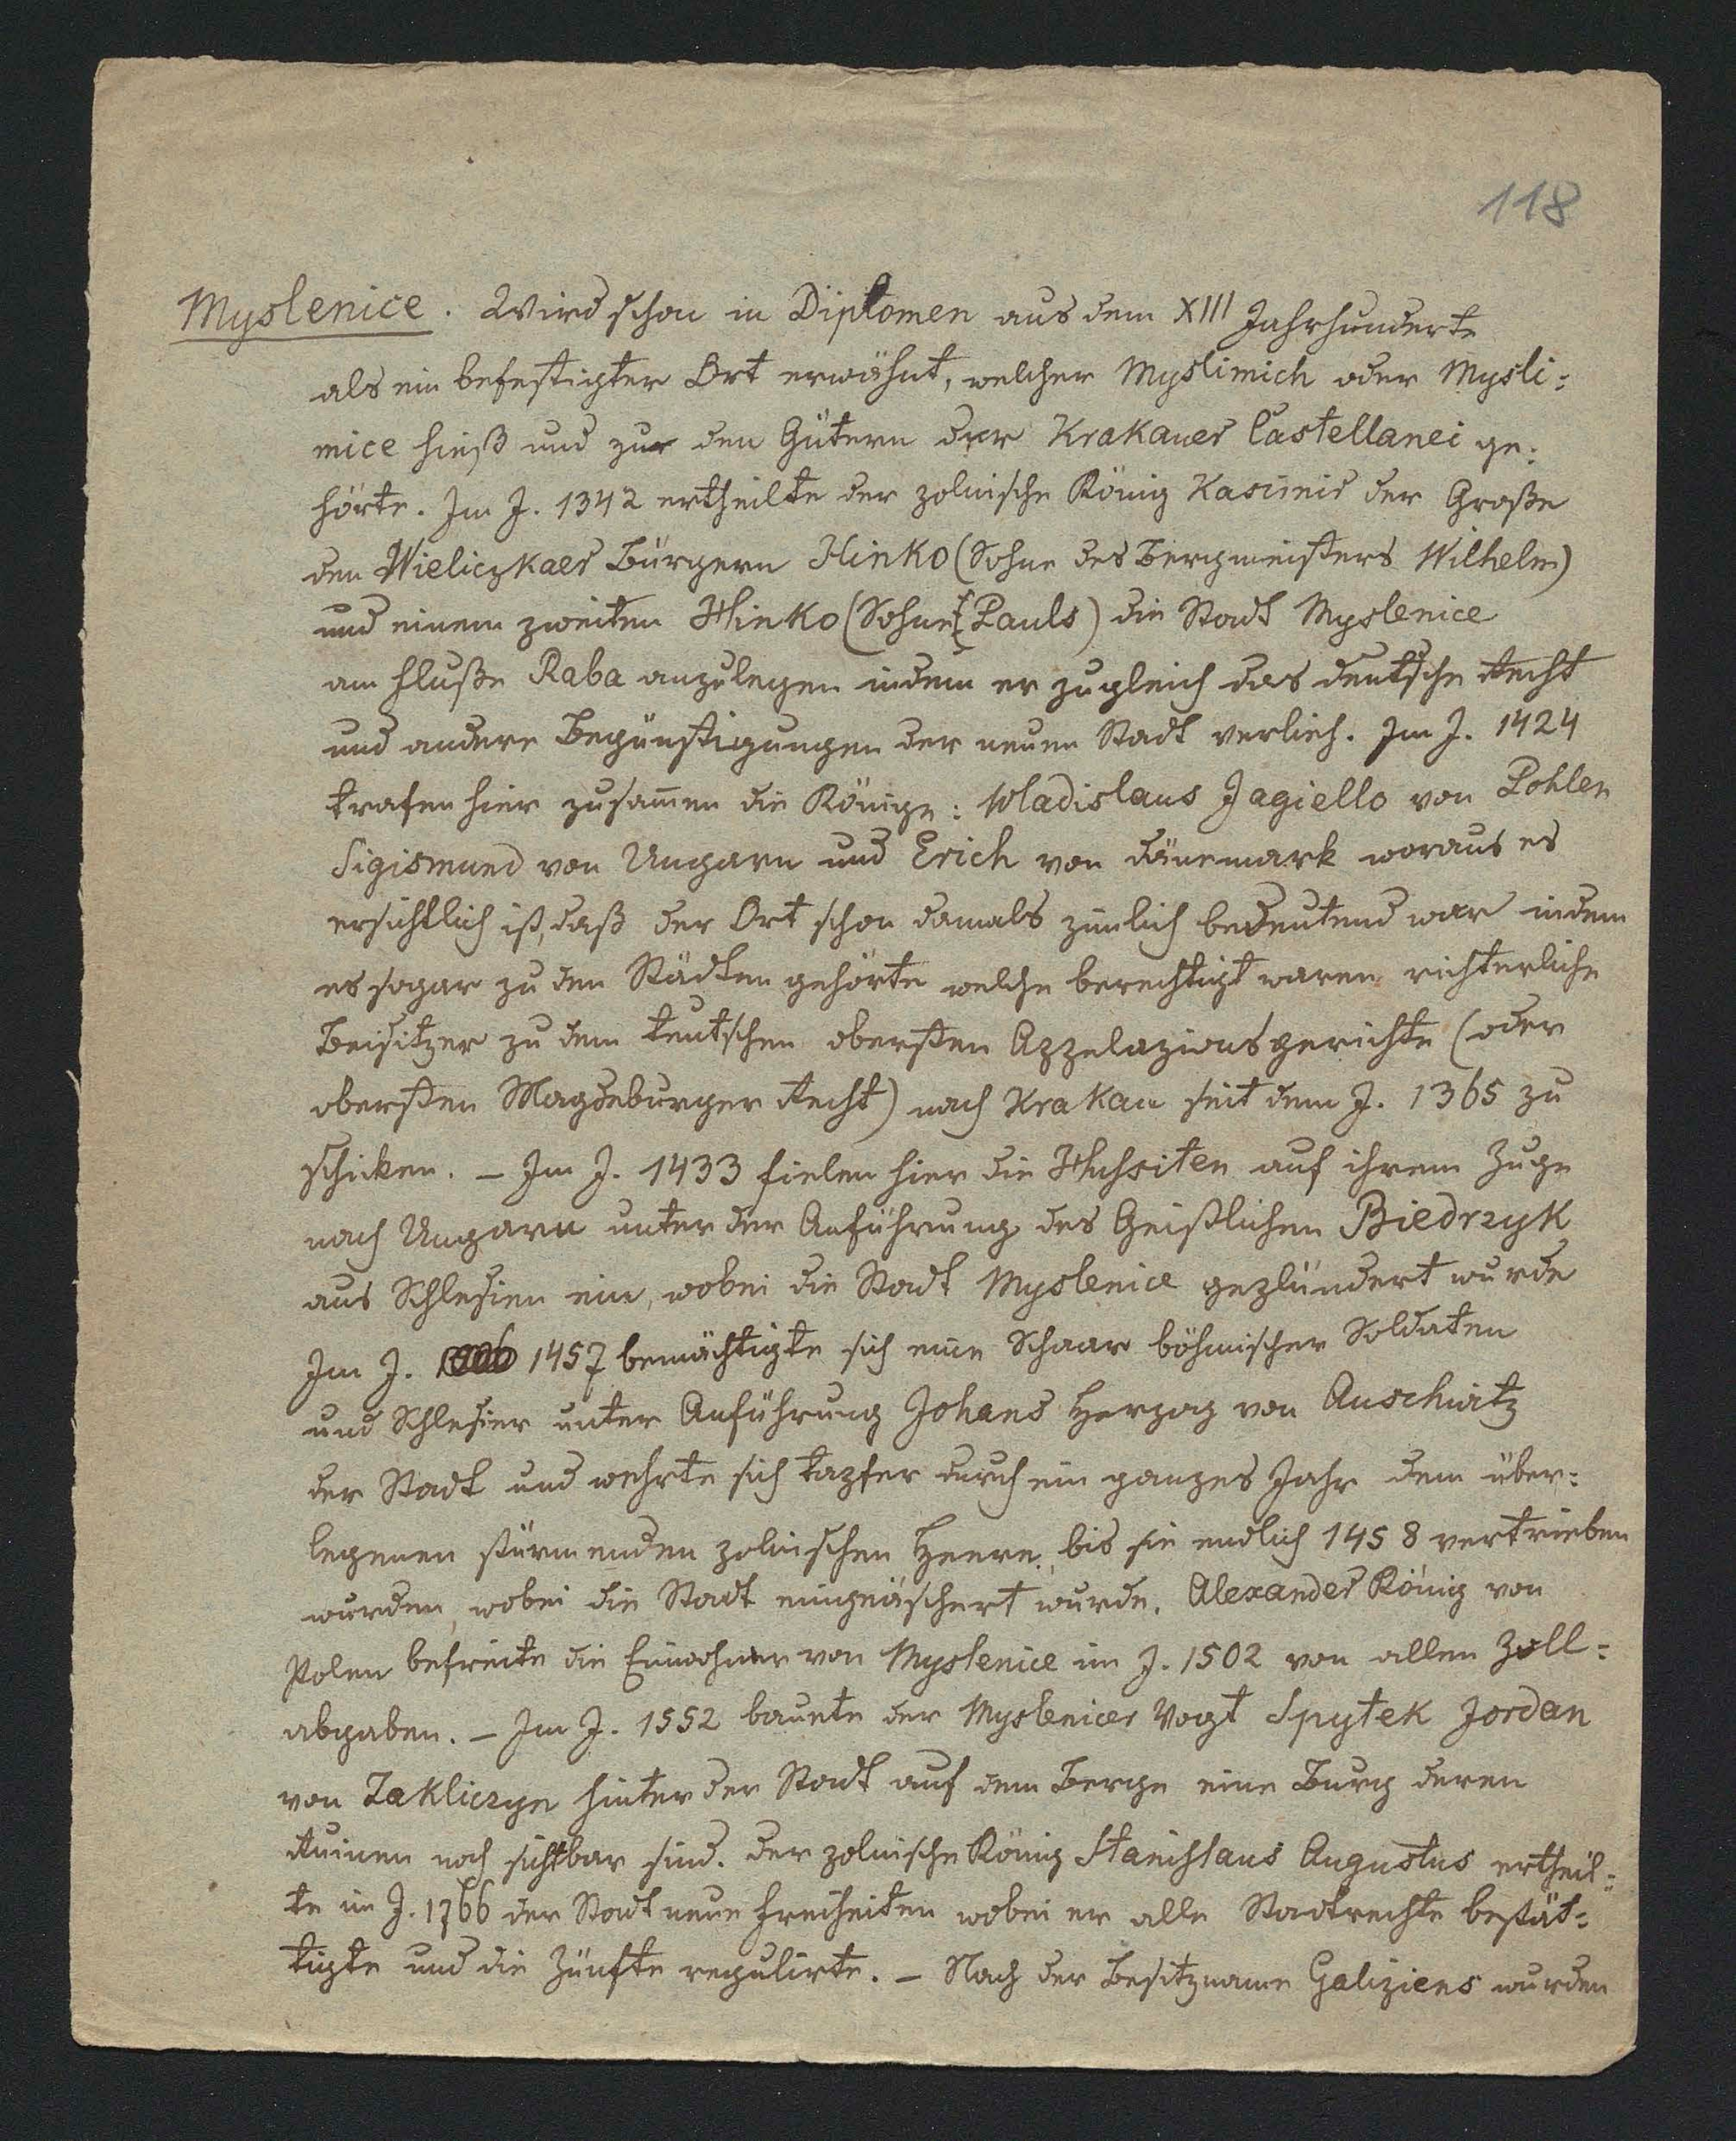 118
Myslenice. Wird schon in Diplomen aus dem XIII Jahrhunderte
als ein befestigter Ort erwähnt, welcher Myslimich oder Mysli=
mice hieß und zu den Gütern der Krakauer Castellanei ge=
hörte. Im J. 1342 ertheilte der polnische König Kasimir der Große
den Wieliczkaer Bürgern Hinko (Sohne des Bergmeisters Wilhelm)
und einem zweiten Hinko (Sohne Pauls) die Stadt Myslenice
am Fluße Raba anzulegen indem er zugleich das deutsche Recht
und andere Begünstigungen der neuen Stadt verlieh. Im J. 1424
trafen hier zusammen die Könige: Wladislaus Jagiello von Pohlen
Sigismund von Ungarn und Erich von Dänemark woraus es
ersichtlich ist, daß der Ort schon damals zimlich bedeutend war indem
es sogar zu den Städten gehörte welche berechtigt waren richterliche
Beisitzer zu dem teutschen obersten Appelazionsgerichte (oder
obersten Magdeburger Recht) nach Krakau seit dem J. 1365 zu
schicken. – Im J. 1433 fielen hier die Hussiten auf ihrem Zuge
nach Ungarn unter der Anführung des Geistlichen Biedrzyk
aus Schlesien ein, wobei die Stadt Myslenice geplündert wurde
Im J. 1457 bemächtigte sich eine Schaar böhmischer Soldaten
und Schlesier unter Anführung Johans Herzog von Auschwitz
der Stadt und wehrte sich tapfer durch ein ganzes Jahr dem über=
legenen stürmenden polnischen Heere, bis sie endlich 1458 vertrieben
wurden, wobei die Stadt eingeäschert wurde. Alexander König von
Polen befreite die Einwohner von Myslenice im J. 1502 von allen Zoll=
abgaben. – Im J. 1552 bauete der Myslenicer Vogt Spytek Jordan
von Zakliczyn hinter der Stadt auf dem Berge eine Burg deren
Ruinen noch sichtbar sind. Der polnische König Stanislaus Augustus ertheil=
te im J. 1766 der Stadt neue Freiheiten wobei er alle Stadtrechte bestät=
tigte und die Zünfte regulirte. – Nach der Besitzname Galiziens wurden